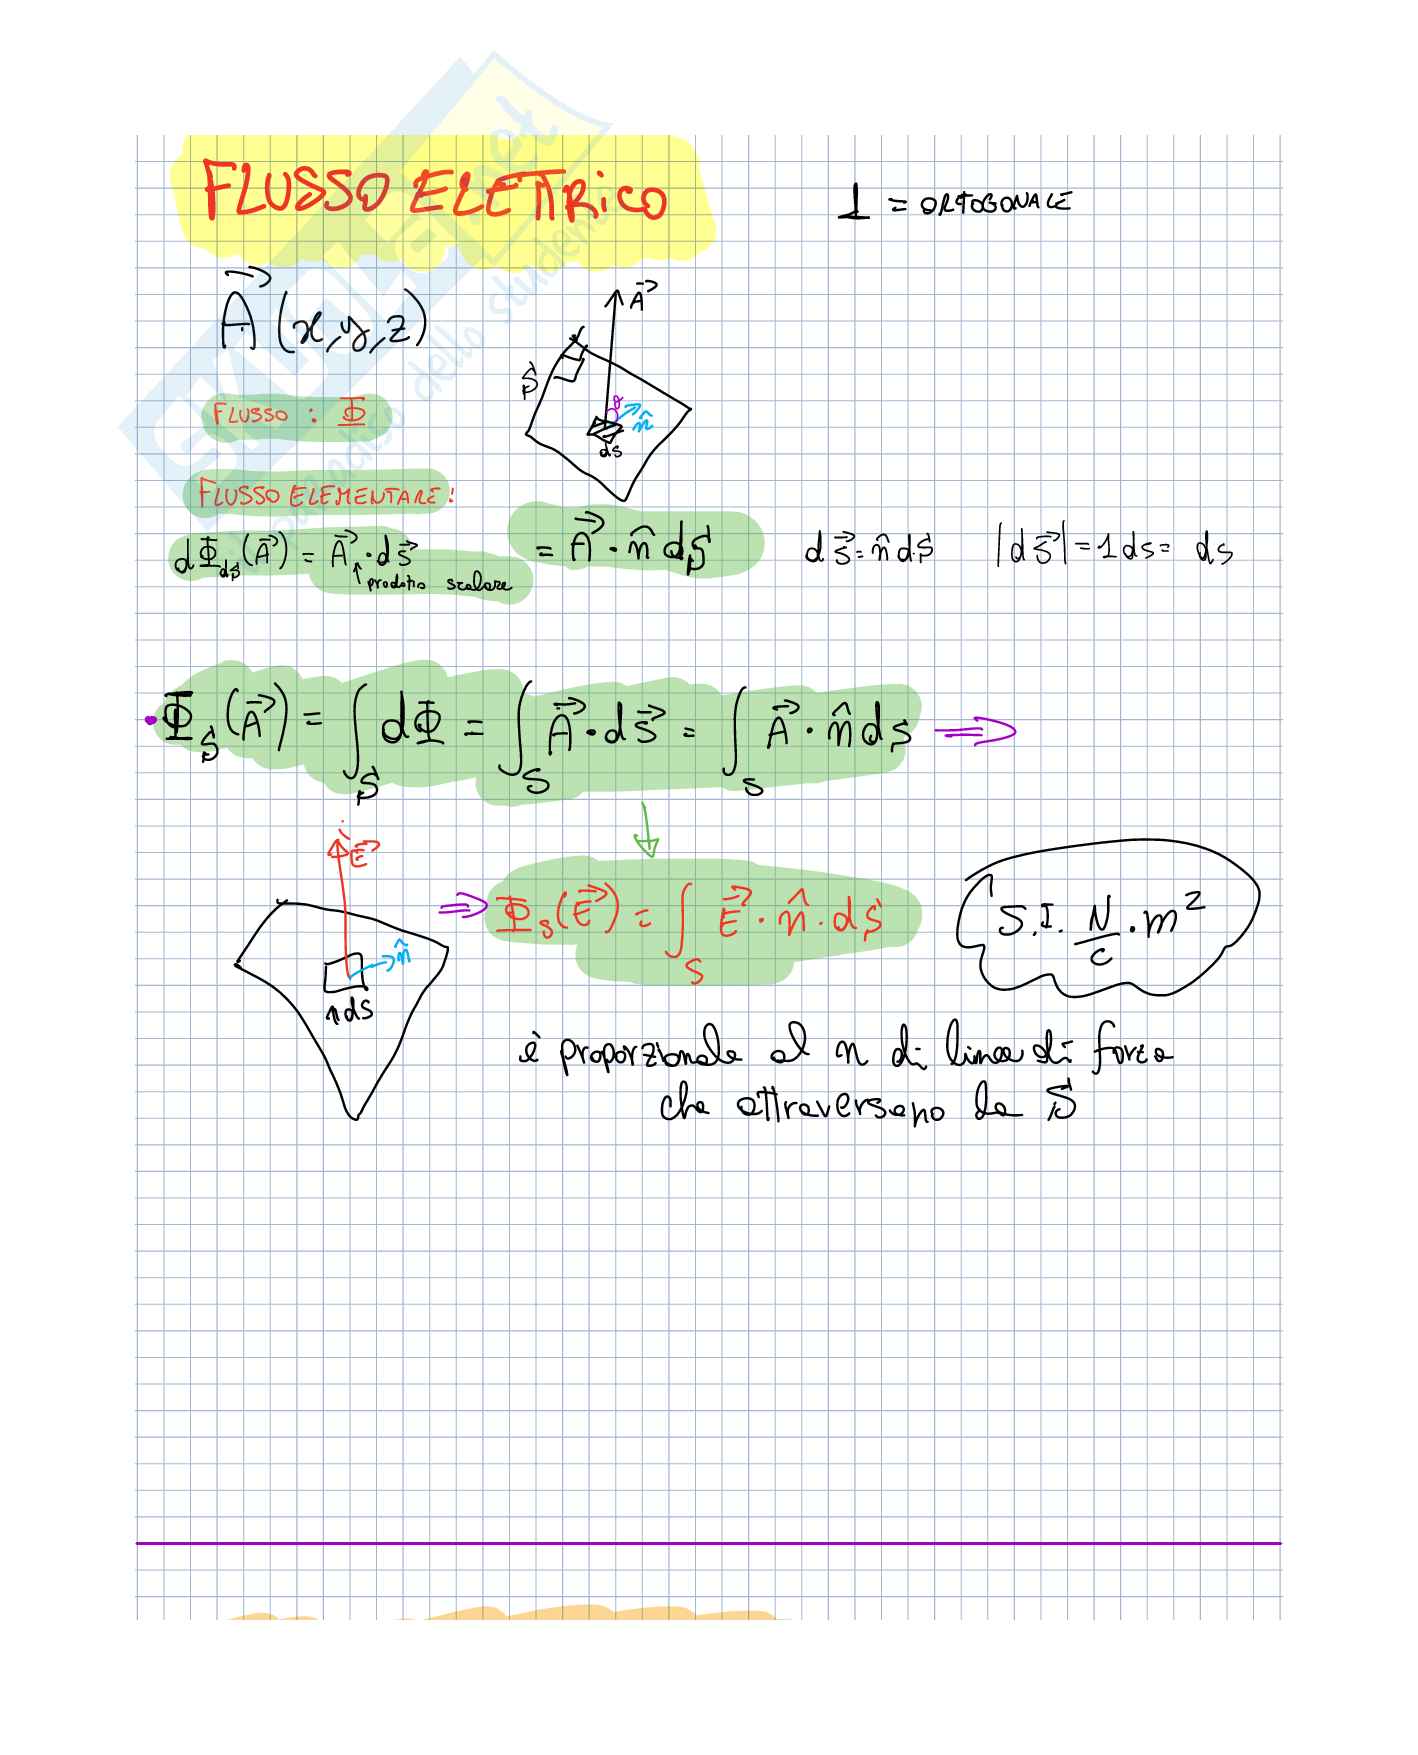 FLUSSO ELETTRICO
⊥ = ORTOGONALE
A⃗ (x,y,z)
A⃗
S
θ
n̂
ds
FLUSSO : Φ
FLUSSO ELEMENTARE:
dΦ_ds(A⃗) = A⃗ · ds⃗ = A⃗ · n̂ dS
↑ prodotto scalare
ds⃗ = n̂ dS |ds⃗| = 1 ds = ds
• Φ_S(A⃗) = ∫_S dΦ = ∫_S A⃗ · ds⃗ = ∫_S A⃗ · n̂ ds ⇒
↓
E⃗
n̂
1 ds
⇒ Φ_S(E⃗) = ∫_S E⃗ · n̂ · dS
S.I. N/C · m²
è proporzionale al n di linee di forza
che attraversano la S